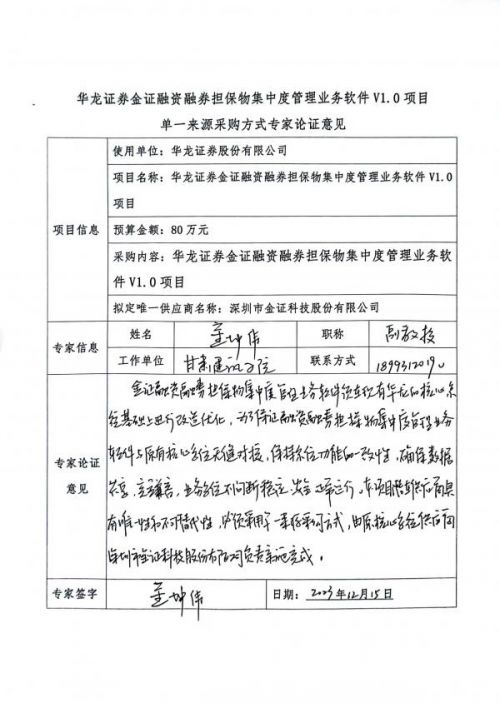 华龙证券金证融资融券担保物集中度管理业务软件V1.0项目
单一来源采购方式专家论证意见
项目信息
使用单位：华龙证券股份有限公司
项目名称：华龙证券金证融资融券担保物集中度管理业务软件V1.0
项目
预算金额：80万元
采购内容：华龙证券金证融资融券担保物集中度管理业务软
件V1.0项目
拟定唯一供应商名称：深圳市金证科技股份有限公司
专家信息
姓名
坤伟
职称
副教授
工作单位
甘肃学院
联系方式
专家论证
意见
金证融资融券担保物集中度管理业务软件须在现有华龙的核心系
统基础上进行改造优化，为了保证融资融券担保物集中度管理业务
软件与原有核心系统无缝对接，保持系统功能的一致性，确保数据
业务系统不间断稳定、安全正常运行。本项目供应商具
有唯一性和不可替代性，必须采用单一来源采购方式，由原核心系统供应商
深圳市金证科技股份有限公司负责实施完成。
专家签字
坤伟
日期：2023年12月15日